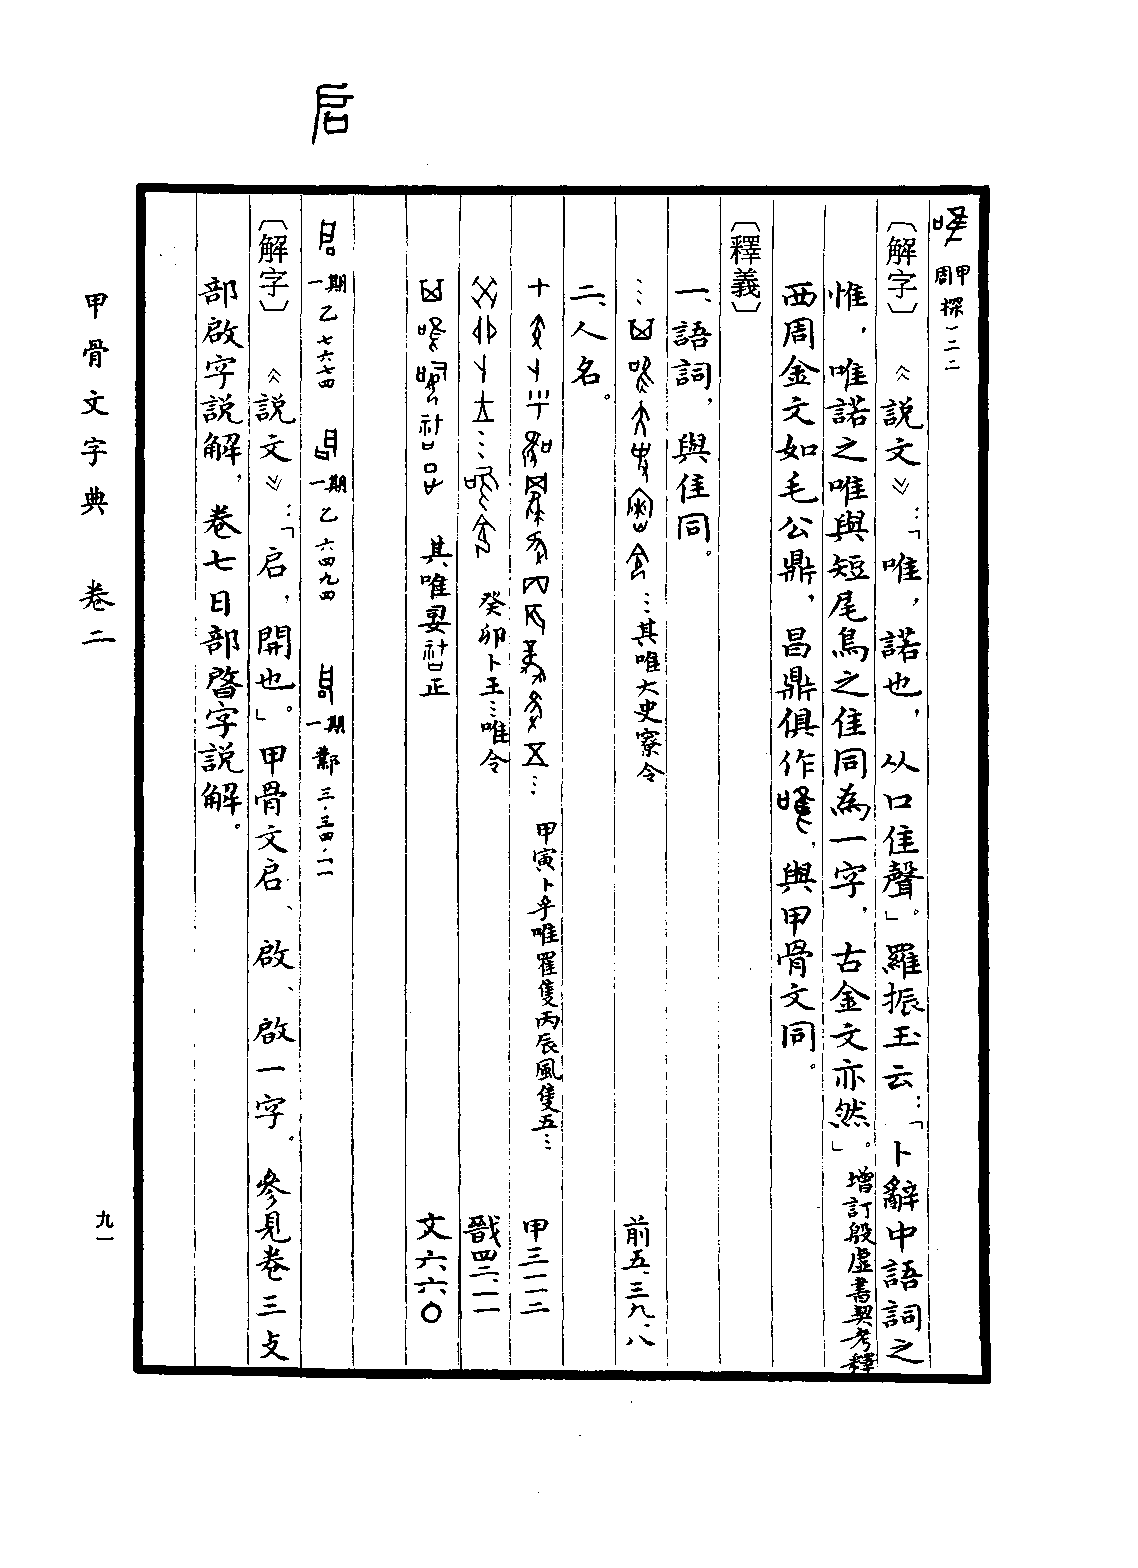 启
周甲探一二二
〔解字〕《說文》:「唯,諾也,从口隹聲」。羅振玉云:「卜辭中語詞之
惟,唯諾之唯與短尾鳥之隹同為一字,古金文亦然」。增訂殷虛書契考釋
西周金文如毛公鼎,曶鼎俱作,與甲骨文同。
〔釋義〕
一、語詞,與隹同。
…其唯大史寮令 前五、三九、八
二、人名。
甲寅卜乎唯罝隻丙辰風隻五… 甲三一一二
癸卯卜王…唯令 戩四二、一一
其唯㞢正 文六六〇
一期 乙七六七四 一期 乙六四九四 一期 鄴三·三四·一一
〔解字〕《說文》:「启,開也」。甲骨文启、啟、啟一字。參見卷三攴
部啟字說解,卷七日部晵字說解。
甲骨文字典 卷二
九一